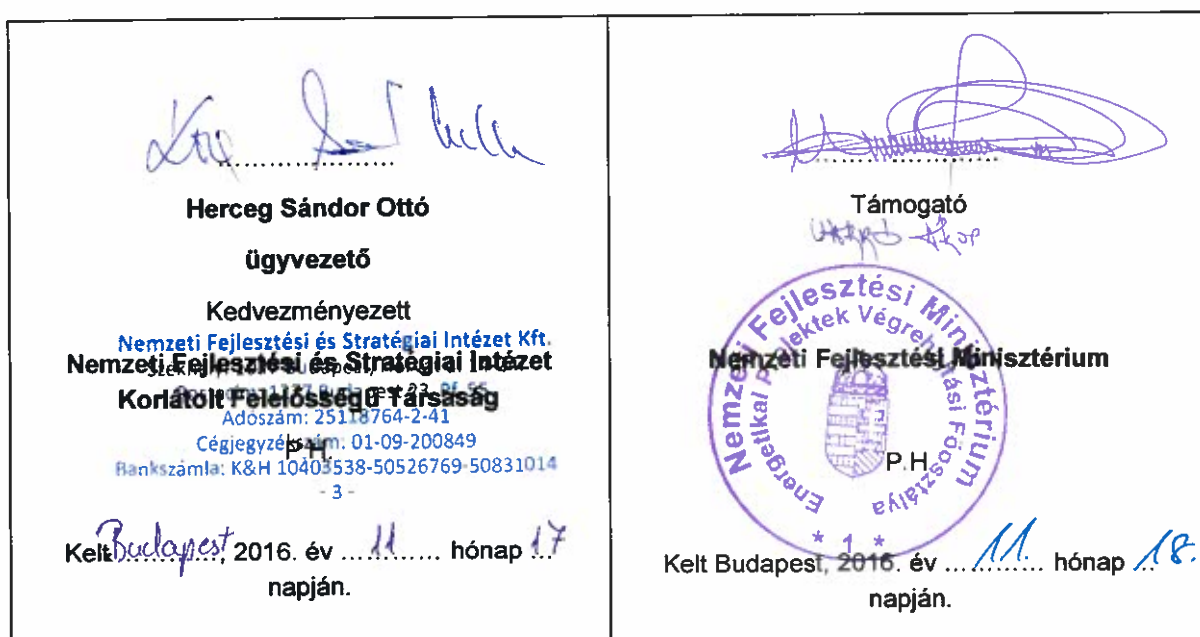 Herceg Sándor Ottó
ügyvezető
Kedvezményezett
Nemzeti Fejlesztési és Stratégiai Intézet Kft.
Nemzeti Fejlesztési és Stratégiai Intézet
Korlátolt Felelősségű Társaság
Adószám: 25118764-2-41
Cégjegyzékszám: 01-09-200849
P.H.
Bankszámla: K&H 10403538-50526769-50831014
- 3 -
Kelt Budapest, 2016. év ...11...... hónap 17
napján.
Támogató
Nemzeti Fejlesztési Minisztérium
Energetikai Projektek Végrehajtási Főosztálya
* 1 *
Nemzeti Fejlesztési Minisztérium
P.H.
Kelt Budapest, 2016. év ...11...... hónap 18.
napján.